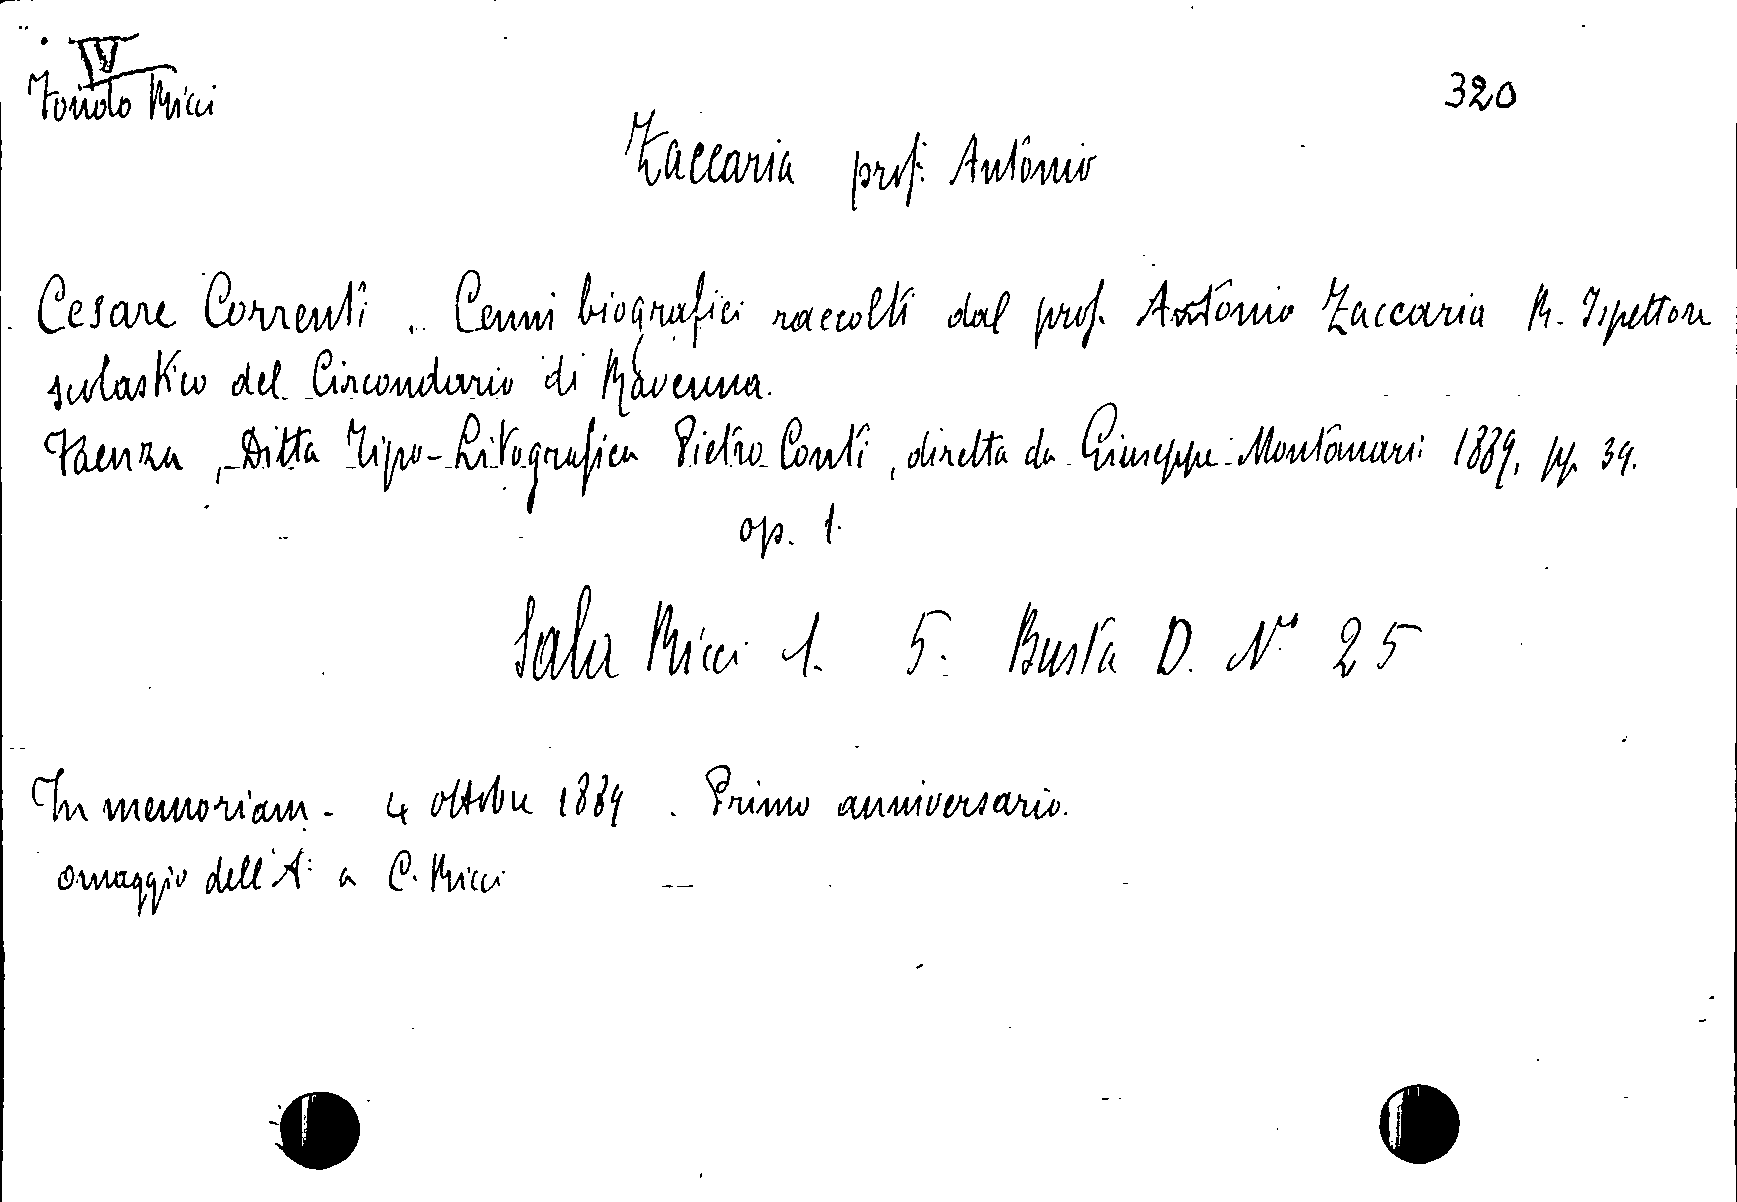 IV
Fondo Ricci
320
Zaccaria prof. Antonio
Cesare Correnti. Cenni biografici raccolti dal prof. Antonio Zaccaria R. Ispettore
scolastico del Circondario di Ravenna.
Faenza, Ditta Tipo-Litografica Pietro Conti, diretta da Giuseppe Montanari 1889, pp. 39.
op. 1.
Sala Ricci 1. 5. Busta D. No 25
In memoriam - 4 ottobre 1889. Primo anniversario.
omaggio dell'A. a C. Ricci